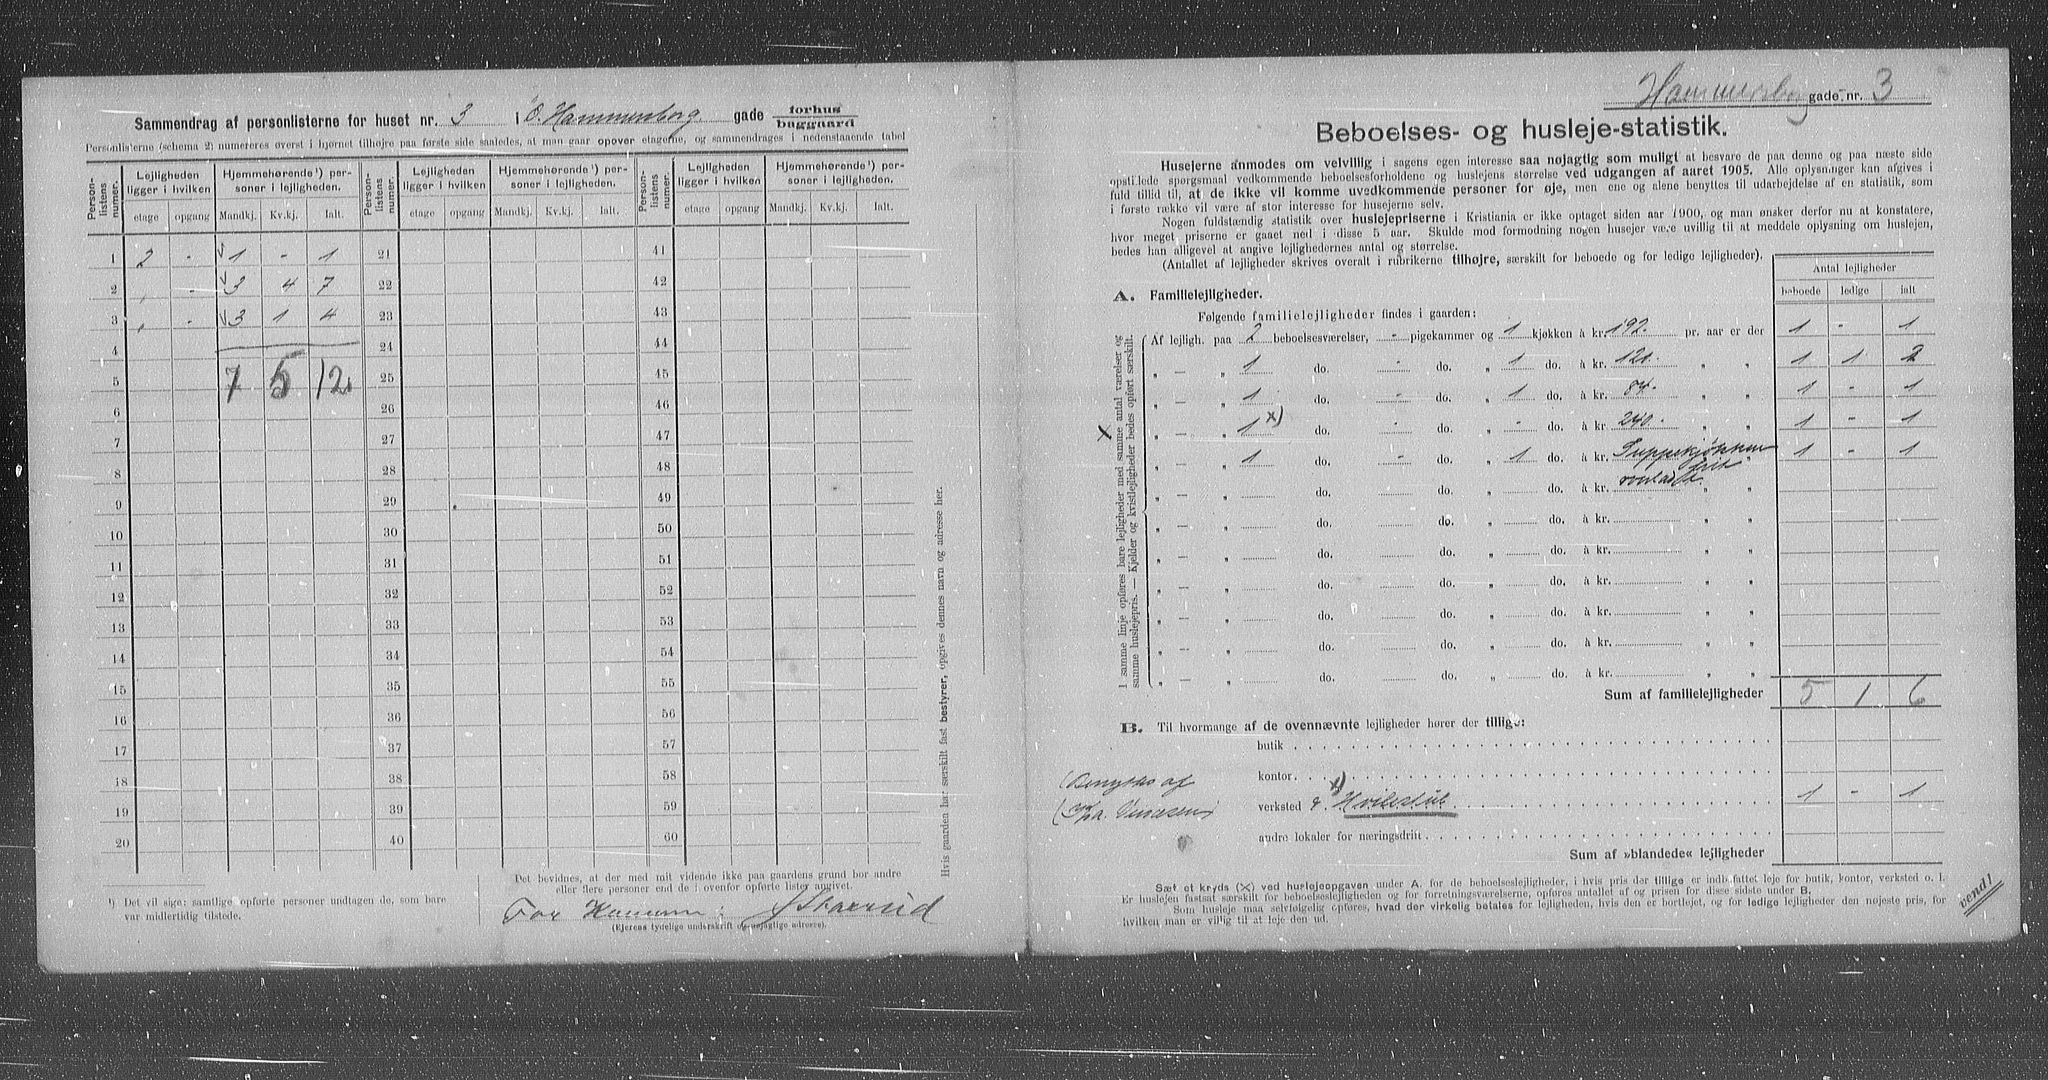 Sammendrag af personlisterne for huset nr. 3 i Ø. Hammersborg gade forhus
baggaard
Personlisterne (schema 2) numereres øverst i hjørnet tilhøjre paa første side saaledes, at man gaar opover etagerne, og sammendrages i nedenstaaende tabel
Person-listens numer. Lejligheden ligger i hvilken Hjemmehørende¹) personer i lejligheden. Person-listens numer. Lejligheden ligger i hvilken Hjemmehørende¹) personer i lejligheden. Person-listens numer. Lejligheden ligger i hvilken Hjemmehørende¹) personer i lejligheden.
etage opgang Mandkj. Kv.kj. Ialt. etage opgang Mandkj. Kv.kj. Ialt. etage opgang Mandkj. Kv.kj. Ialt.
1 2 - √1 - 1 21 41
2 „ - √3 4 7 22 42
3 „ - √3 1 4 23 43
4 24 44
5 7 5 12 25 45
6 26 46
7 27 47
8 28 48
9 29 49
10 30 50
11 31 51
12 32 52
13 33 53
14 34 54
15 35 55
16 36 56
17 37 57
18 38 58
19 39 59
20 40 60
Hvis gaarden har særskilt fast bestyrer, opgives dennes navn og adresse her.
¹) Det vil sige: samtlige opførte personer undtagen de, som bare
var midlertidig tilstede.
Det bevidnes, at der med mit vidende ikke paa gaardens grund bor andre
eller flere personer end de i ovenfor opførte lister angivet.
For
(Ejerens tydelige underskrift og nøjagtige adresse).
Hammersborg gade nr. 3
Beboelses- og husleje-statistik.
Husejerne anmodes om velvillig i sagens egen interesse saa nøjagtig som muligt at besvare de paa denne og paa næste side
opstillede spørgsmaal vedkommende beboelsesforholdene og huslejens størrelse ved udgangen af aaret 1905. Alle oplysninger kan afgives i
fuld tillid til, at de ikke vil komme uvedkommende personer for øje, men ene og alene benyttes til udarbejdelse af en statistik, som
i første række vil være af stor interesse for husejerne selv.
Nogen fuldstændig statistik over huslejepriserne i Kristiania er ikke optaget siden aar 1900, og man ønsker derfor nu at konstatere,
hvor meget priserne er gaaet ned i disse 5 aar. Skulde mod formodning nogen husejer være uvillig til at meddele oplysning om huslejen,
bedes han alligevel at angive lejlighedernes antal og størrelse.
(Antallet af lejligheder skrives overalt i rubrikerne tilhøjre, særskilt for beboede og for ledige lejligheder).
Antal lejligheder
beboede ledige ialt
A. Familielejligheder.
Følgende familielejligheder findes i gaarden:
I samme linje opføres bare lejligheder med samme antal værelser og
samme huslejepris. — Kjelder og kvistlejligheder bedes opført særskilt.
Af lejligh. paa 2 beboelsesværelser, - pigekammer og 1 kjøkken à kr. 192. pr. aar er der 1 - 1
„ — „ 1 do. - do. „ 1 do. à kr. 121. „ „ 1 1 2
„ — „ 1 do. - do. „ 1 do. à kr. 84. „ „ 1 - 1
X „ — „ 1 x) do. - do. „ - do. à kr. 240. „ „ 1 - 1
„ — „ 1 do. - do. „ 1 do. à kr. Suppekjøkken „ 1 - 1
„ — „ do. do. „ do. à kr. „ „
„ — „ do. do. „ do. à kr. „ „
„ — „ do. do. „ do. à kr. „ „
„ — „ do. do. „ do. à kr. „ „
„ — „ do. do. „ do. à kr. „ „
„ — „ do. do. „ do. à kr. „ „
„ — „ do. do. „ do. à kr. „ „
Sum af familielejligheder 5 1 6
B. Til hvormange af de ovennævnte lejligheder hører der tillige:
butik
kontor
(Benyttes af
verksted x) Hvilestue 1 - 1
andre lokaler for næringsdrift
Sum af »blandede« lejligheder
Sæt et kryds (X) ved huslejeopgaven under A. for de beboelseslejligheder, i hvis pris der tillige er indbefattet leje for butik, kontor, verksted o. l.
Er huslejen fastsat særskilt for beboelseslejligheden og for forretningsværelserne, opføres antallet af og prisen for disse sidste under B.
Som husleje maa selvfølgelig opføres, hvad der virkelig betales for lejligheden, hvis den er bortlejet, og for ledige lejligheder den nøjeste pris, for
hvilken man er villig til at leje den ud.
vend!